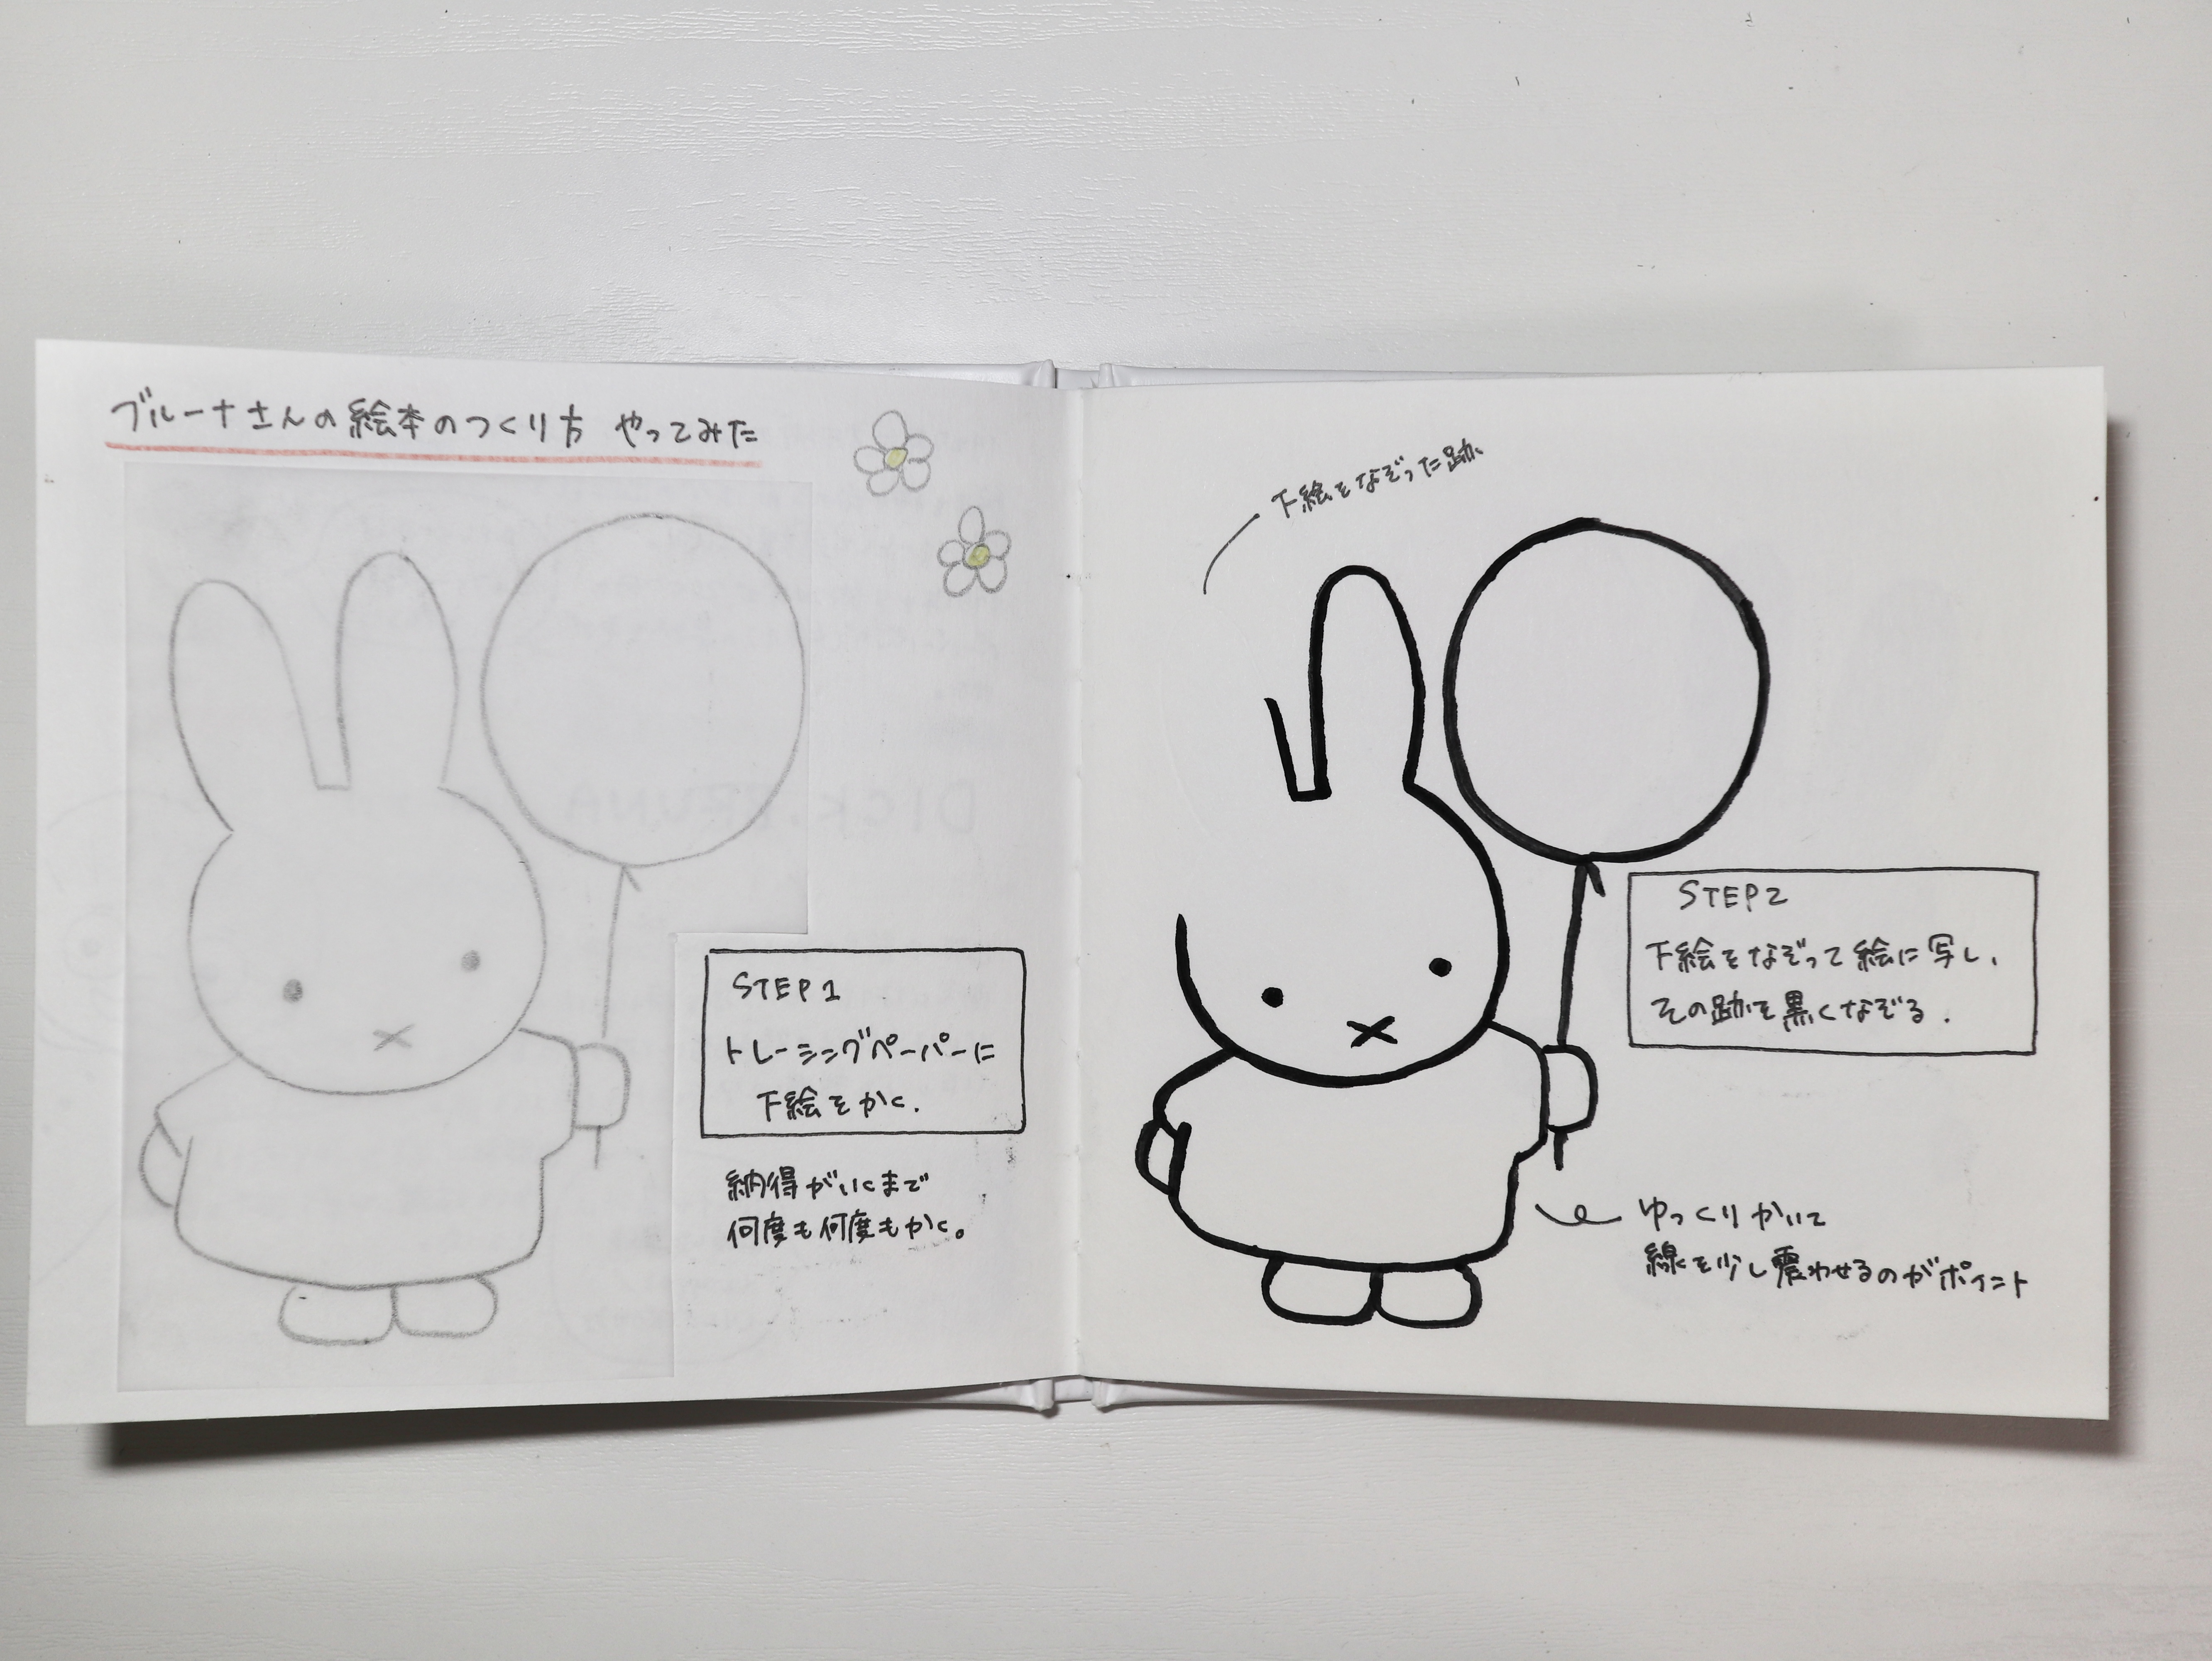 ブルーナさんの絵本のつくり方 やってみた
STEP1
トレーシングペーパーに
下絵をかく.
納得がいくまで
何度も何度もかく。
下絵をなぞった跡
STEP2
下絵をなぞって絵に写し、
その跡を黒くなぞる.
ゆっくりかいて
線を少し震わせるのがポイント